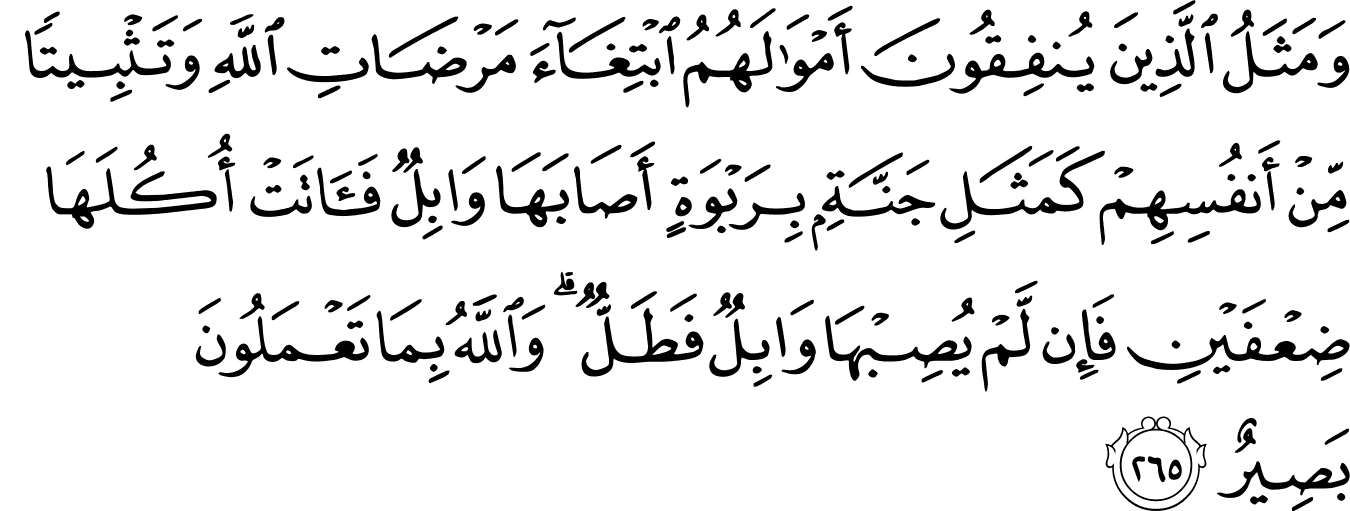 وَمَثَلُ ٱلَّذِينَ يُنفِقُونَ أَمْوَٰلَهُمُ ٱبْتِغَآءَ مَرْضَاتِ ٱللَّهِ وَتَثْبِيتًا
مِّنْ أَنفُسِهِمْ كَمَثَلِ جَنَّةٍۭ بِرَبْوَةٍ أَصَابَهَا وَابِلٌ فَـَٔاتَتْ أُكُلَهَا
ضِعْفَيْنِ فَإِن لَّمْ يُصِبْهَا وَابِلٌ فَطَلٌّ ۗ وَٱللَّهُ بِمَا تَعْمَلُونَ
بَصِيرٌ ٢٦٥